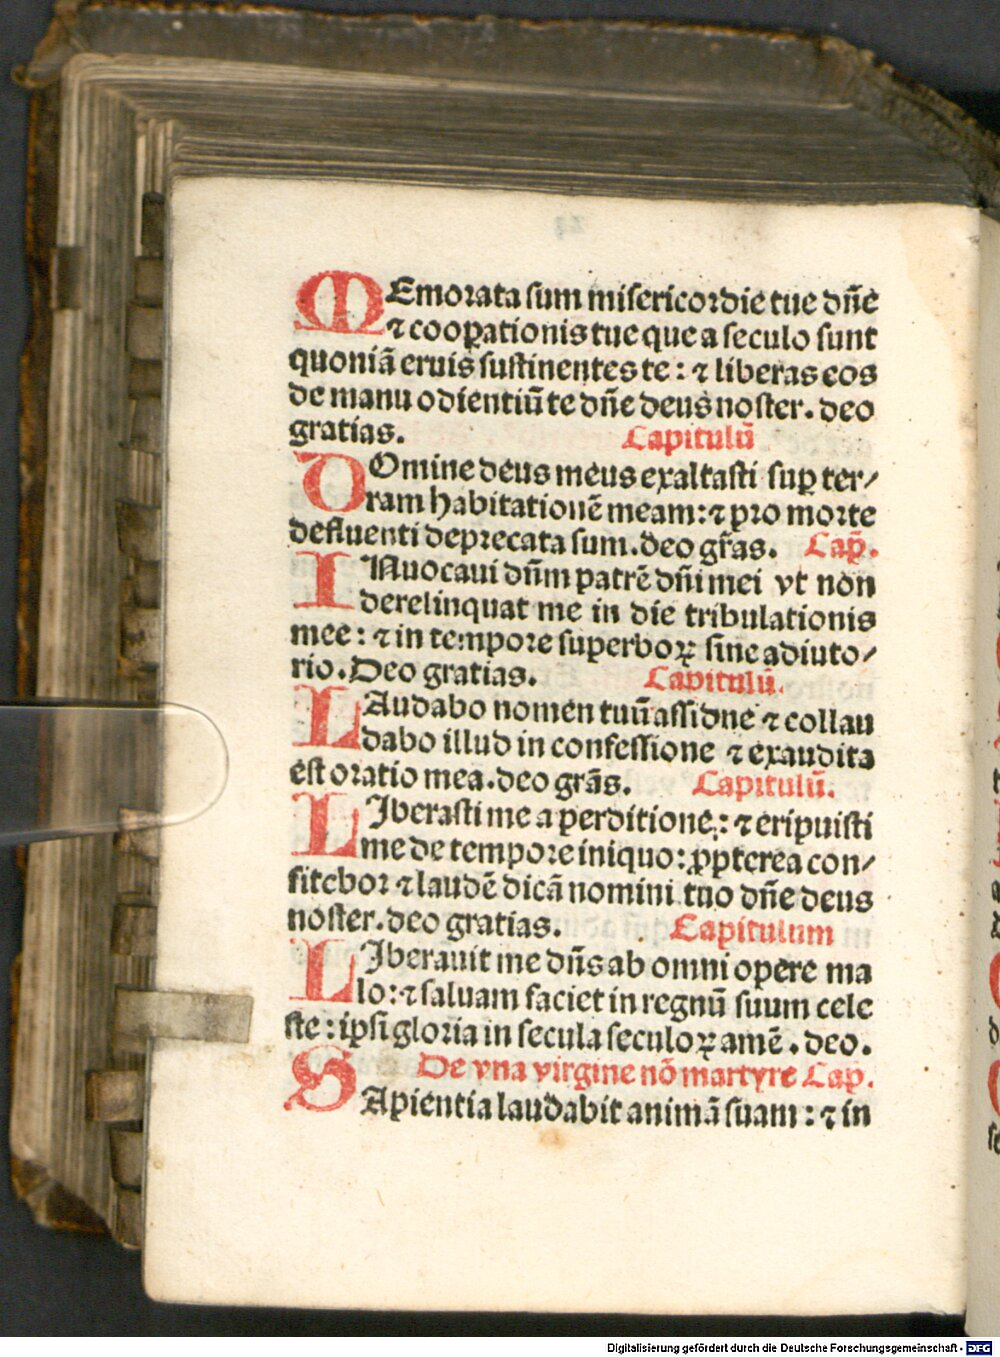 MEmorata sum misericordie tue dñe
⁊ cooꝑationis tue que a seculo sunt
quoniã eruis sustinentes te : ⁊ liberas eos
de manu odientiũ te dñe deus noster. deo
gratias. Capitulũ
DOmine deus meus exaltasti suꝑ ter/
ram habitationẽ meam: ⁊ pro morte
defluenti deprecata sum. deo gr̃as. Cap̃.
INuocaui dñm patrẽ dñi mei vt non
derelinquat me in die tribulationis
mee : ⁊ in tempore superboꝝ sine adiuto/
rio. Deo gratias. Capitulũ.
LAudabo nomen tuũ assidue ⁊ collau
dabo illud in confessione ⁊ exaudita
est oratio mea. deo grãs. Capitulũ.
LJberasti me a perditione: ⁊ eripuisti
me de tempore iniquo: ꝓpterea con/
fitebor ⁊ laudẽ dicã nomini tuo dñe deus
noster. deo gratias. Capitulum
LJberauit me dñs ab omni opere ma
lo: ⁊ saluam faciet in regnũ suum cele
ste : ipsi gloria in secula seculoꝝ amẽ. deo.
De vna virgine nõ martyre Cap.
SApientia laudabit animã suam : ⁊ in
Digitalisierung gefördert durch die Deutsche Forschungsgemeinschaft - DFG